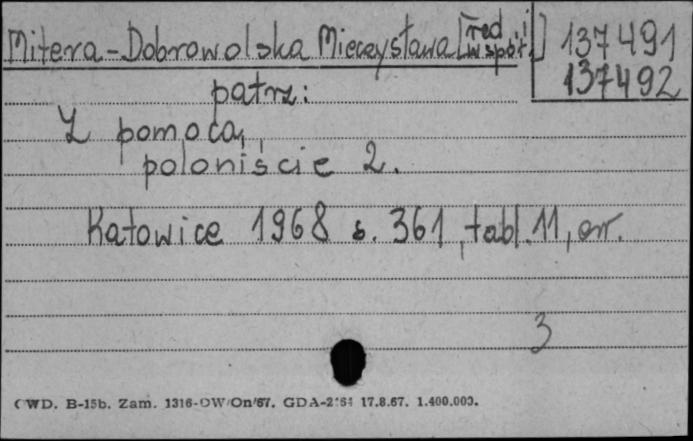 Mitera-Dobrowolska Mieczysława [red. i współ.] 137491
137492
patrz:
Z pomocą
poloniście 2.
Katowice 1968 s. 361, tabl. 11, err.
3
CWD. B-15b. Zam. 1316-OW/On/67. GDA-2164 17.8.67. 1.400.000.